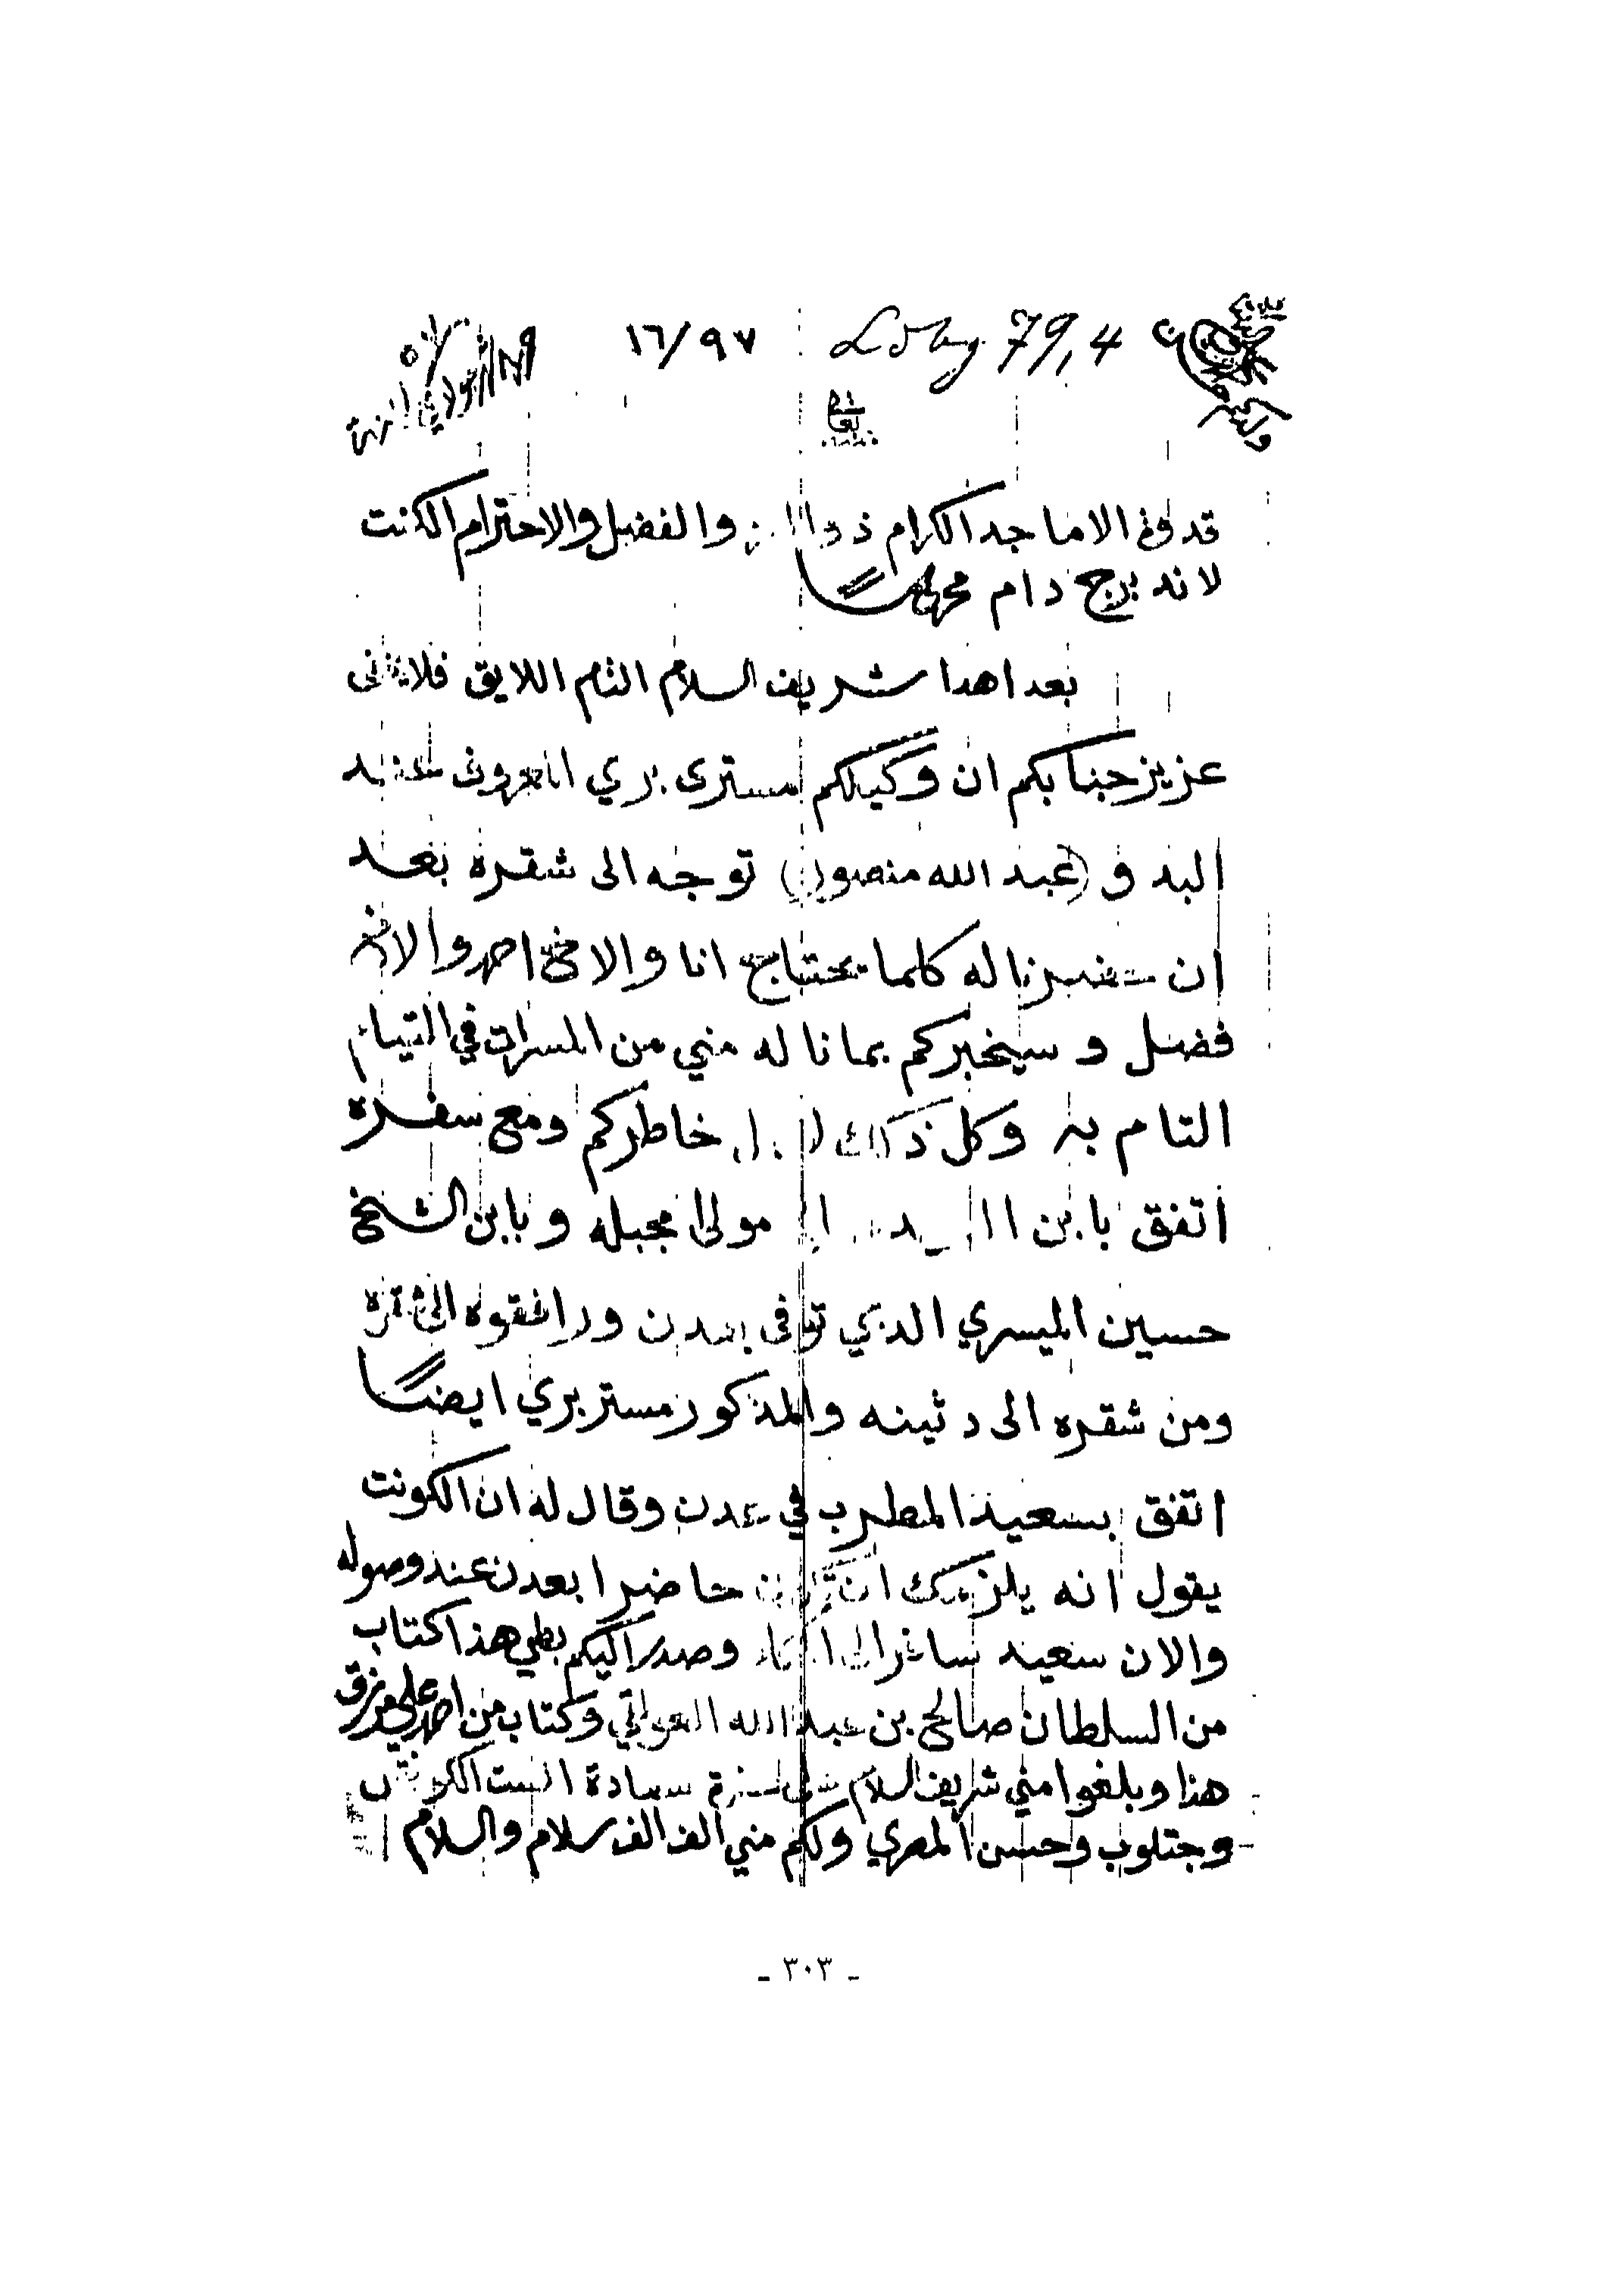 ١٦/٩٧ Ldbg. 79,4
قدوة الاماجد الكرام والفضل والاحترام الكنت
لاندبرج دام محروسًا
بعد اهدا شريف السلام التام اللايق فلا يخفى
عزيز جنابكم ان وكيلكم مستر بري المعروف عند
البدو (عبد الله منصور) توجه الى شقره بعد
ان له كلما يحتاج انا والاخ احمد والاخ
فضل وسيخبركم بما ناله مني من المسرات في القيام
التام به وكل ذلك خاطركم ومع سفره
اتفق بابن مولى مجبله وبابن الشيخ
حسين الميسري الدي توفى بعدن ورافقوه الى شقره
ومن شقره الى دثينه والمذكور مستر بري ايضًا
اتفق بسعيد المطرب في عدن وقال له ان الكونت
يقول انه يلزمك ان تكون حاضرا بعدن عند وصوله
والان سعيد سافر الى وصدر اليكم بطي هذا كتاب
من السلطان صالح بن عبد الله العولقي وكتاب من احمد علي مرزق
هذا وبلغوا مني شريف السلام سعادة الست
وجتلوب وحسن المصري ولكم مني الف الف سلام والسلام
- ٣٠٣ -